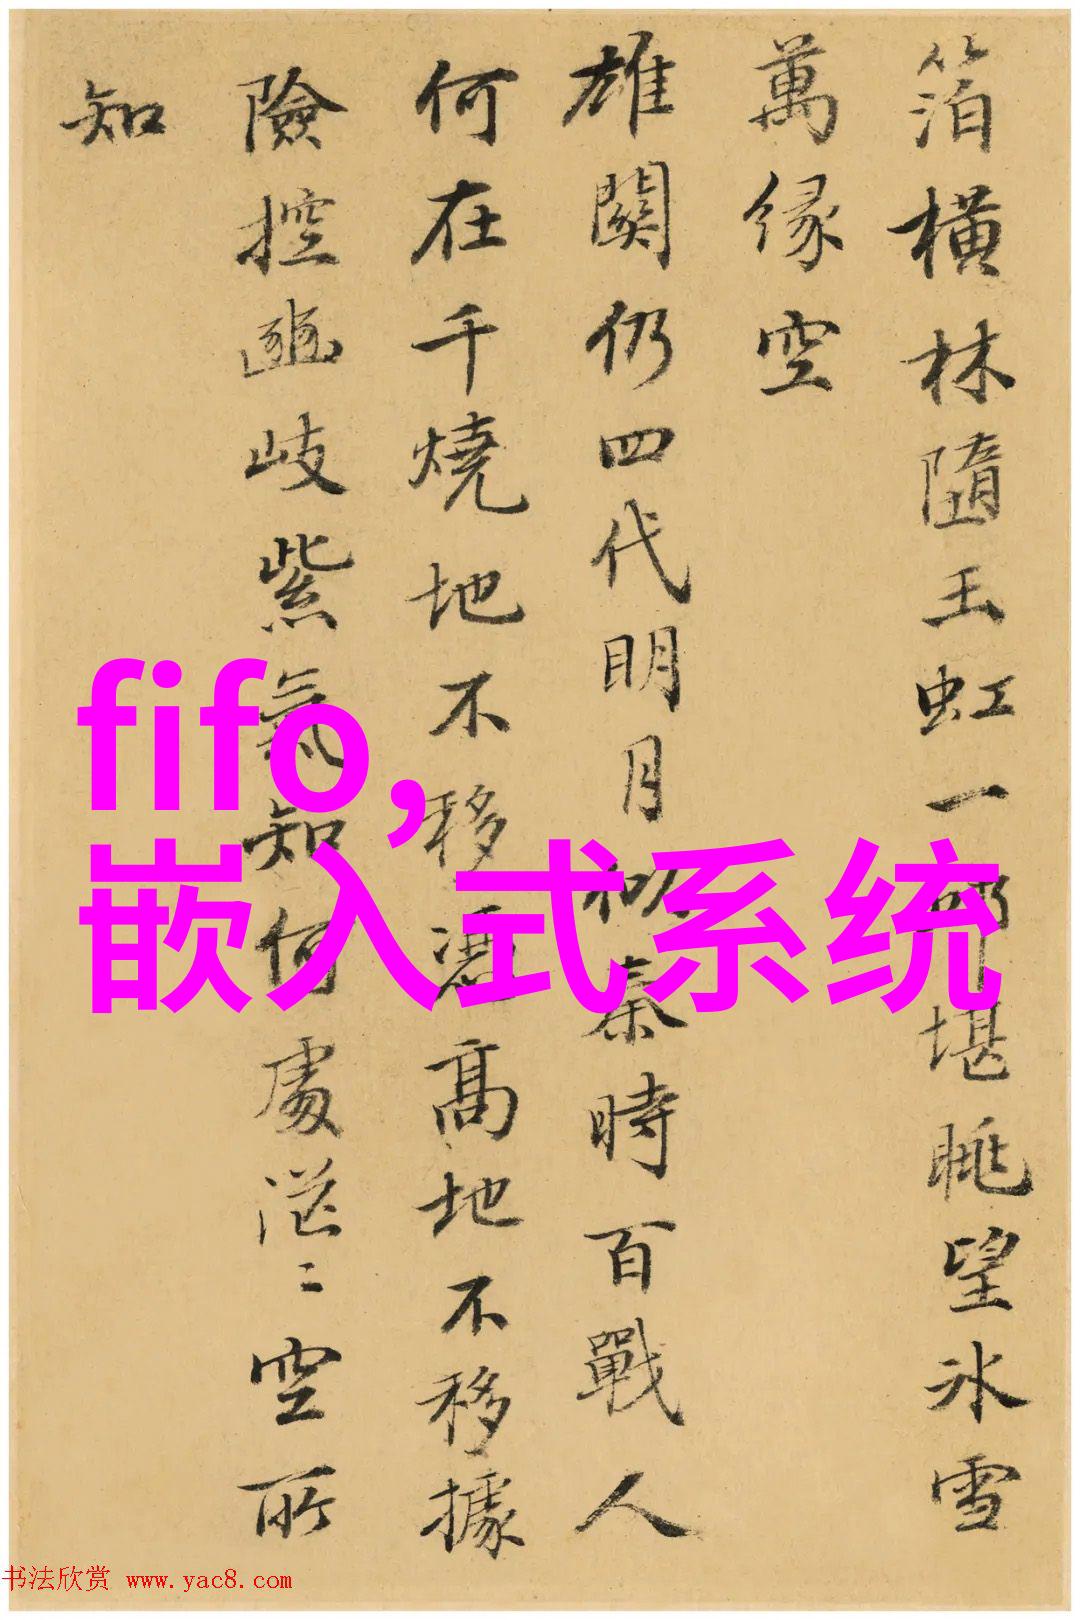 箔橫林隨玉虹一 堪眺望冰雪
萬緣空
雄關仍四代明月 秦時百戰人
何在千燒地不移 高地不移據
險控 岐紫氣知何處 空所
知
fifo,
嵌入式系统
书法欣赏 www.yac8.com